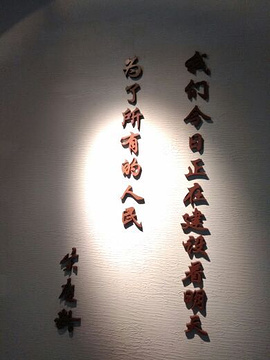 我们今日正在建设着明天
为了所有的人民